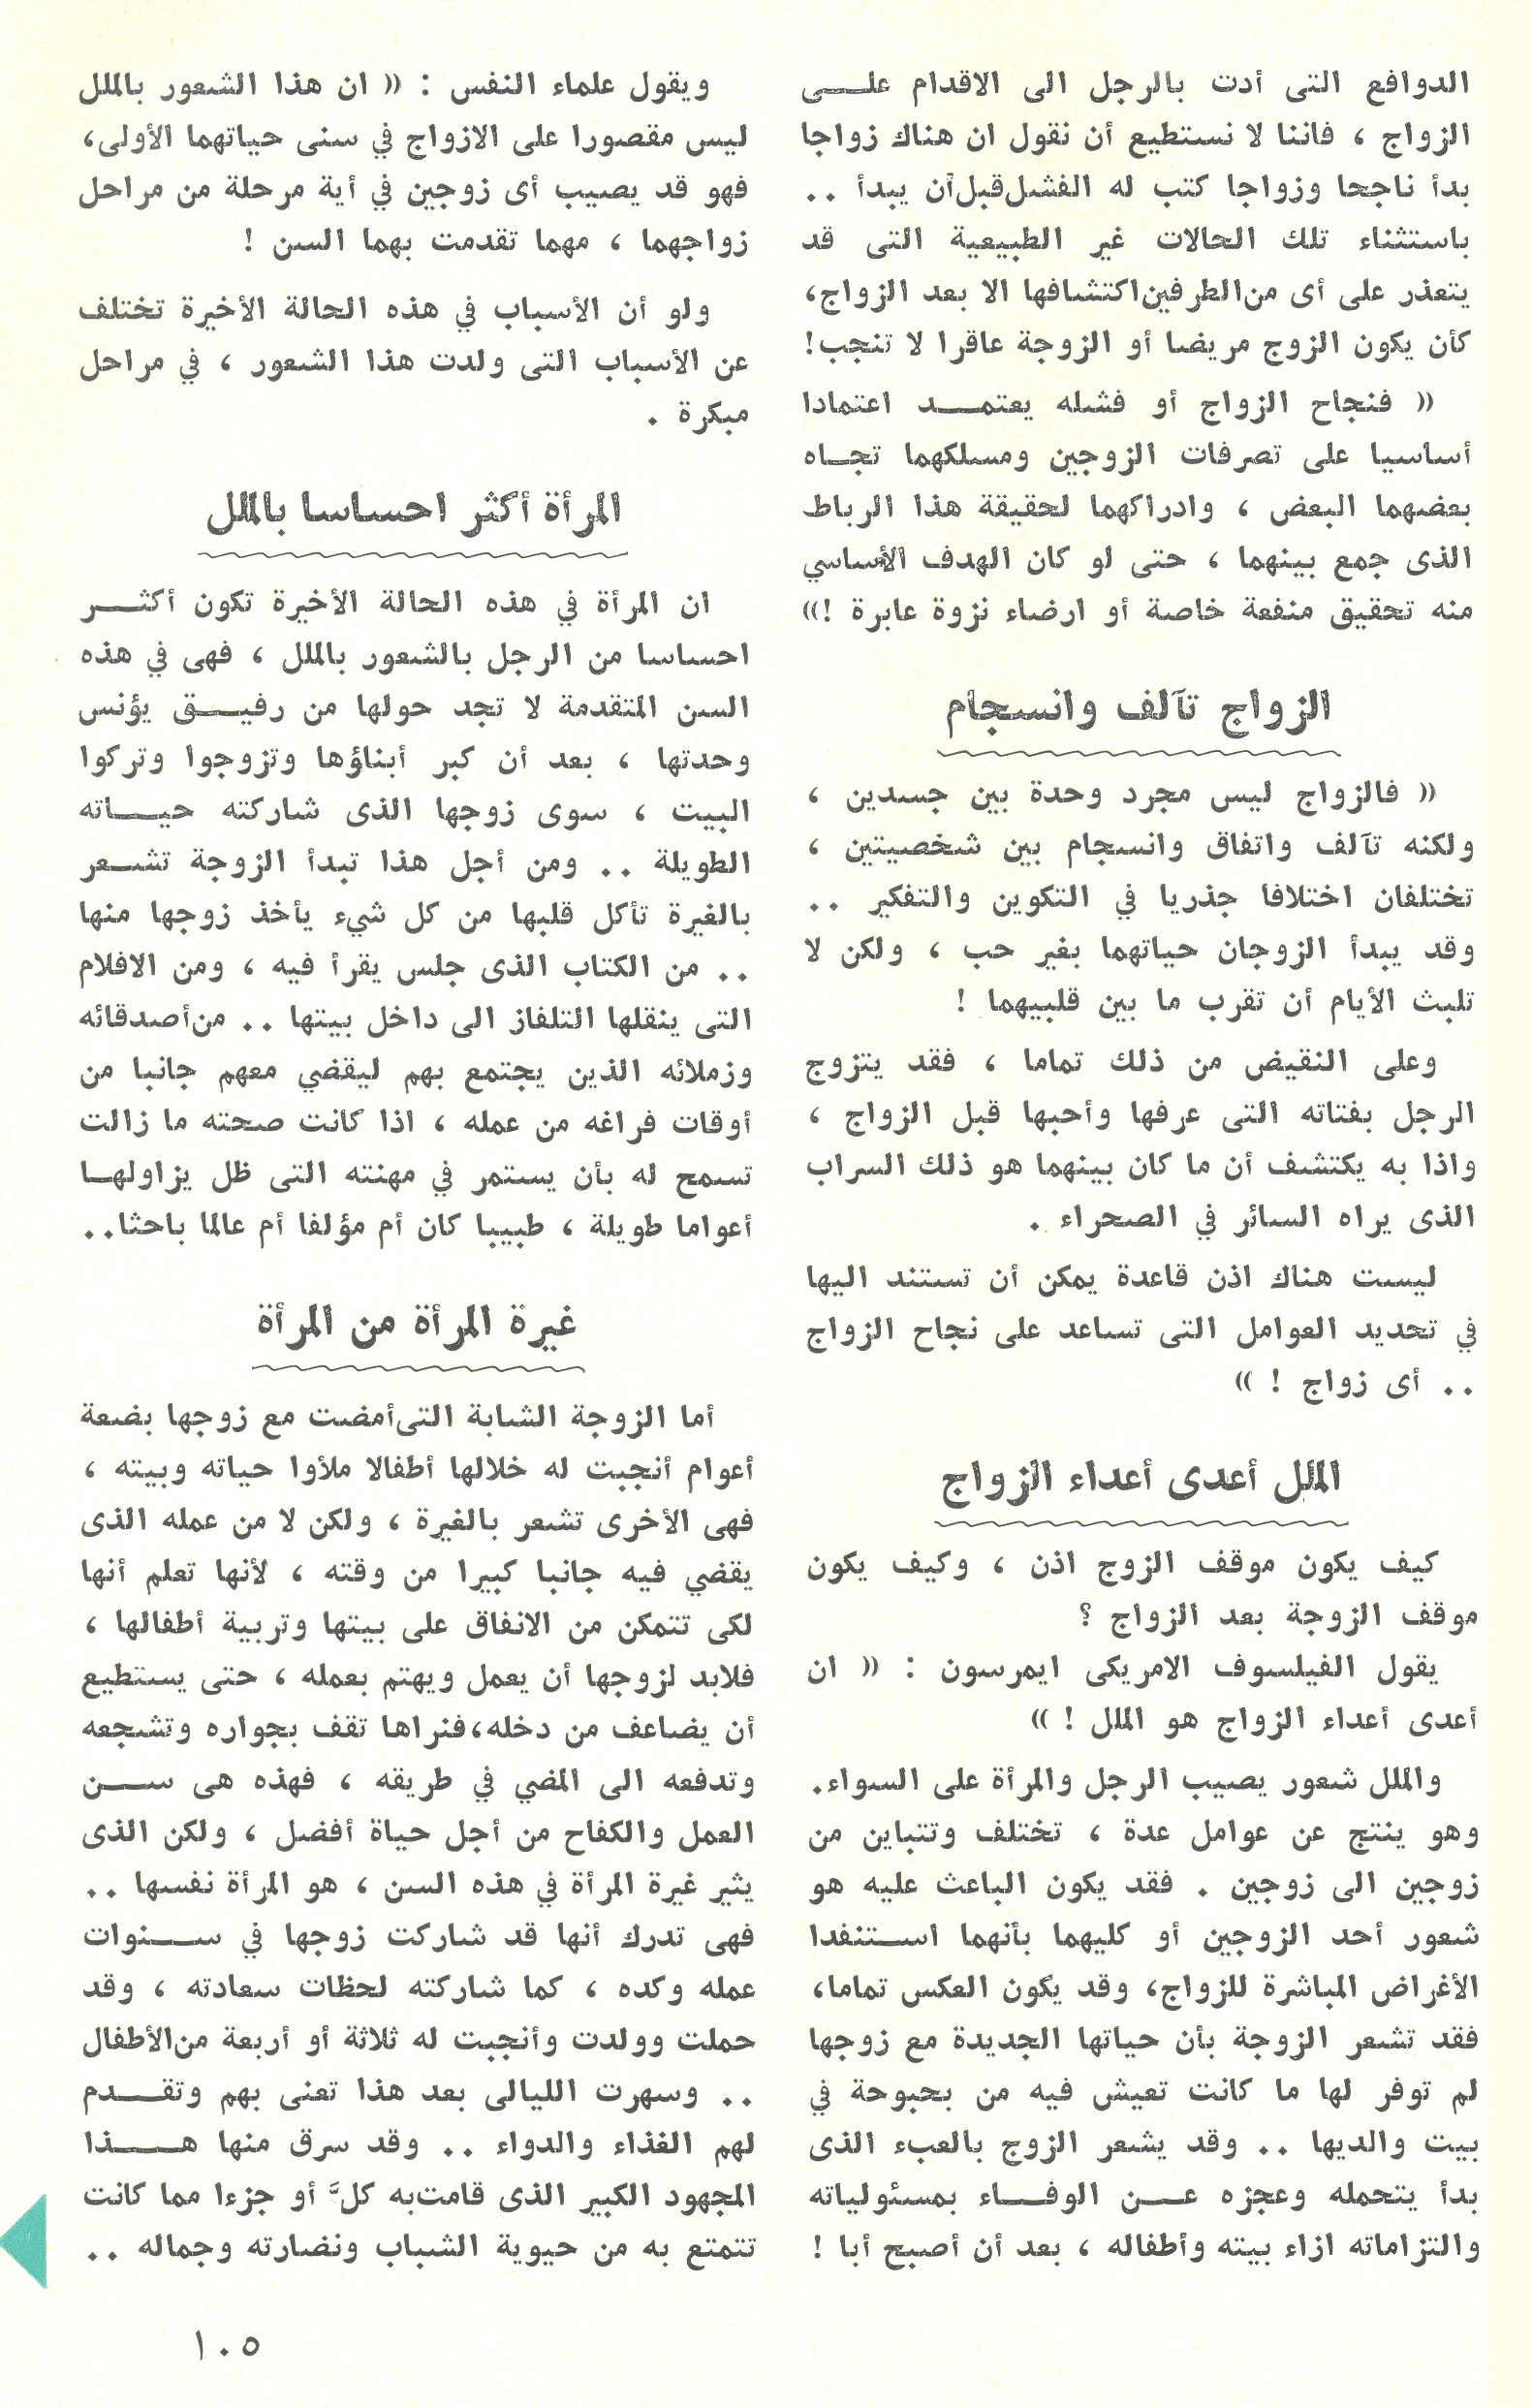 الدوافع التى أدت بالرجل الى الاقدام على
الزواج ، فاننا لا نستطيع أن نقول ان هناك زواجا
بدأ ناجحا وزواجا كتب له الفشل قبل أن يبدأ ..
باستثناء تلك الحالات غير الطبيعية التى قد
يتعذر على أى من الطرفين اكتشافها الا بعد الزواج،
كأن يكون الزوج مريضا أو الزوجة عاقرا لا تنجب!
« فنجاح الزواج أو فشله يعتمد اعتمادا
أساسيا على تصرفات الزوجين ومسلكهما تجاه
بعضهما البعض ، وادراكهما لحقيقة هذا الرباط
الذى جمع بينهما ، حتى لو كان الهدف الأساسي
منه تحقيق منفعة خاصة أو ارضاء نزوة عابرة !»
الزواج تآلف وانسجام
« فالزواج ليس مجرد وحدة بين جسدين ،
ولكنه تآلف واتفاق وانسجام بين شخصيتين ،
تختلفان اختلافا جذريا في التكوين والتفكير ..
وقد يبدأ الزوجان حياتهما بغير حب ، ولكن لا
تلبث الأيام أن تقرب ما بين قلبيهما !
وعلى النقيض من ذلك تماما ، فقد يتزوج
الرجل بفتاته التى عرفها وأحبها قبل الزواج ،
واذا به يكتشف أن ما كان بينهما هو ذلك السراب
الذى يراه السائر في الصحراء .
ليست هناك اذن قاعدة يمكن أن تستند اليها
في تحديد العوامل التى تساعد على نجاح الزواج
.. أى زواج ! »
الملل أعدى أعداء الزواج
كيف يكون موقف الزوج اذن ، وكيف يكون
موقف الزوجة بعد الزواج ؟
يقول الفيلسوف الامريكى ايمرسون : « ان
أعدى أعداء الزواج هو الملل ! »
والملل شعور يصيب الرجل والمرأة على السواء.
وهو ينتج عن عوامل عدة ، تختلف وتتباين من
زوجين الى زوجين . فقد يكون الباعث عليه هو
شعور أحد الزوجين أو كليهما بأنهما استنفدا
الأغراض المباشرة للزواج، وقد يكون العكس تماما،
فقد تشعر الزوجة بأن حياتها الجديدة مع زوجها
لم توفر لها ما كانت تعيش فيه من بحبوحة في
بيت والديها .. وقد يشعر الزوج بالعبء الذى
بدأ يتحمله وعجزه عن الوفاء بمسئولياته
والتزاماته ازاء بيته وأطفاله ، بعد أن أصبح أبا !
ويقول علماء النفس : « ان هذا الشعور بالملل
ليس مقصورا على الازواج في سنى حياتهما الأولى،
فهو قد يصيب أى زوجين في أية مرحلة من مراحل
زواجهما ، مهما تقدمت بهما السن !
ولو أن الأسباب في هذه الحالة الأخيرة تختلف
عن الأسباب التى ولدت هذا الشعور ، في مراحل
مبكرة .
المرأة أكثر احساسا بالملل
ان المرأة في هذه الحالة الأخيرة تكون أكثر
احساسا من الرجل بالشعور بالملل ، فهى في هذه
السن المتقدمة لا تجد حولها من رفيق يؤنس
وحدتها ، بعد أن كبر أبناؤها وتزوجوا وتركوا
البيت ، سوى زوجها الذى شاركته حياته
الطويلة .. ومن أجل هذا تبدأ الزوجة تشعر
بالغيرة تأكل قلبها من كل شيء يأخذ زوجها منها
.. من الكتاب الذى جلس يقرأ فيه ، ومن الافلام
التى ينقلها التلفاز الى داخل بيتها .. من أصدقائه
وزملائه الذين يجتمع بهم ليقضي معهم جانبا من
أوقات فراغه من عمله ، اذا كانت صحته ما زالت
تسمح له بأن يستمر في مهنته التى ظل يزاولها
أعواما طويلة ، طبيبا كان أم مؤلفا أم عالما باحثا..
غيرة المرأة من المرأة
أما الزوجة الشابة التى أمضت مع زوجها بضعة
أعوام أنجبت له خلالها أطفالا ملأوا حياته وبيته ،
فهى الأخرى تشعر بالغيرة ، ولكن لا من عمله الذى
يقضي فيه جانبا كبيرا من وقته ، لأنها تعلم أنها
لكى تتمكن من الانفاق على بيتها وتربية أطفالها ،
فلابد لزوجها أن يعمل ويهتم بعمله ، حتى يستطيع
أن يضاعف من دخله، فنراها تقف بجواره وتشجعه
وتدفعه الى المضي في طريقه ، فهذه هى سن
العمل والكفاح من أجل حياة أفضل ، ولكن الذى
يثير غيرة المرأة في هذه السن ، هو المرأة نفسها ..
فهى تدرك أنها قد شاركت زوجها في سنوات
عمله وكده ، كما شاركته لحظات سعادته ، وقد
حملت وولدت وأنجبت له ثلاثة أو أربعة من الأطفال
.. وسهرت الليالى بعد هذا تعنى بهم وتقدم
لهم الغذاء والدواء .. وقد سرق منها هذا
المجهود الكبير الذى قامت به كلَّ أو جزءا مما كانت
تتمتع به من حيوية الشباب ونضارته وجماله ..
١٠٥